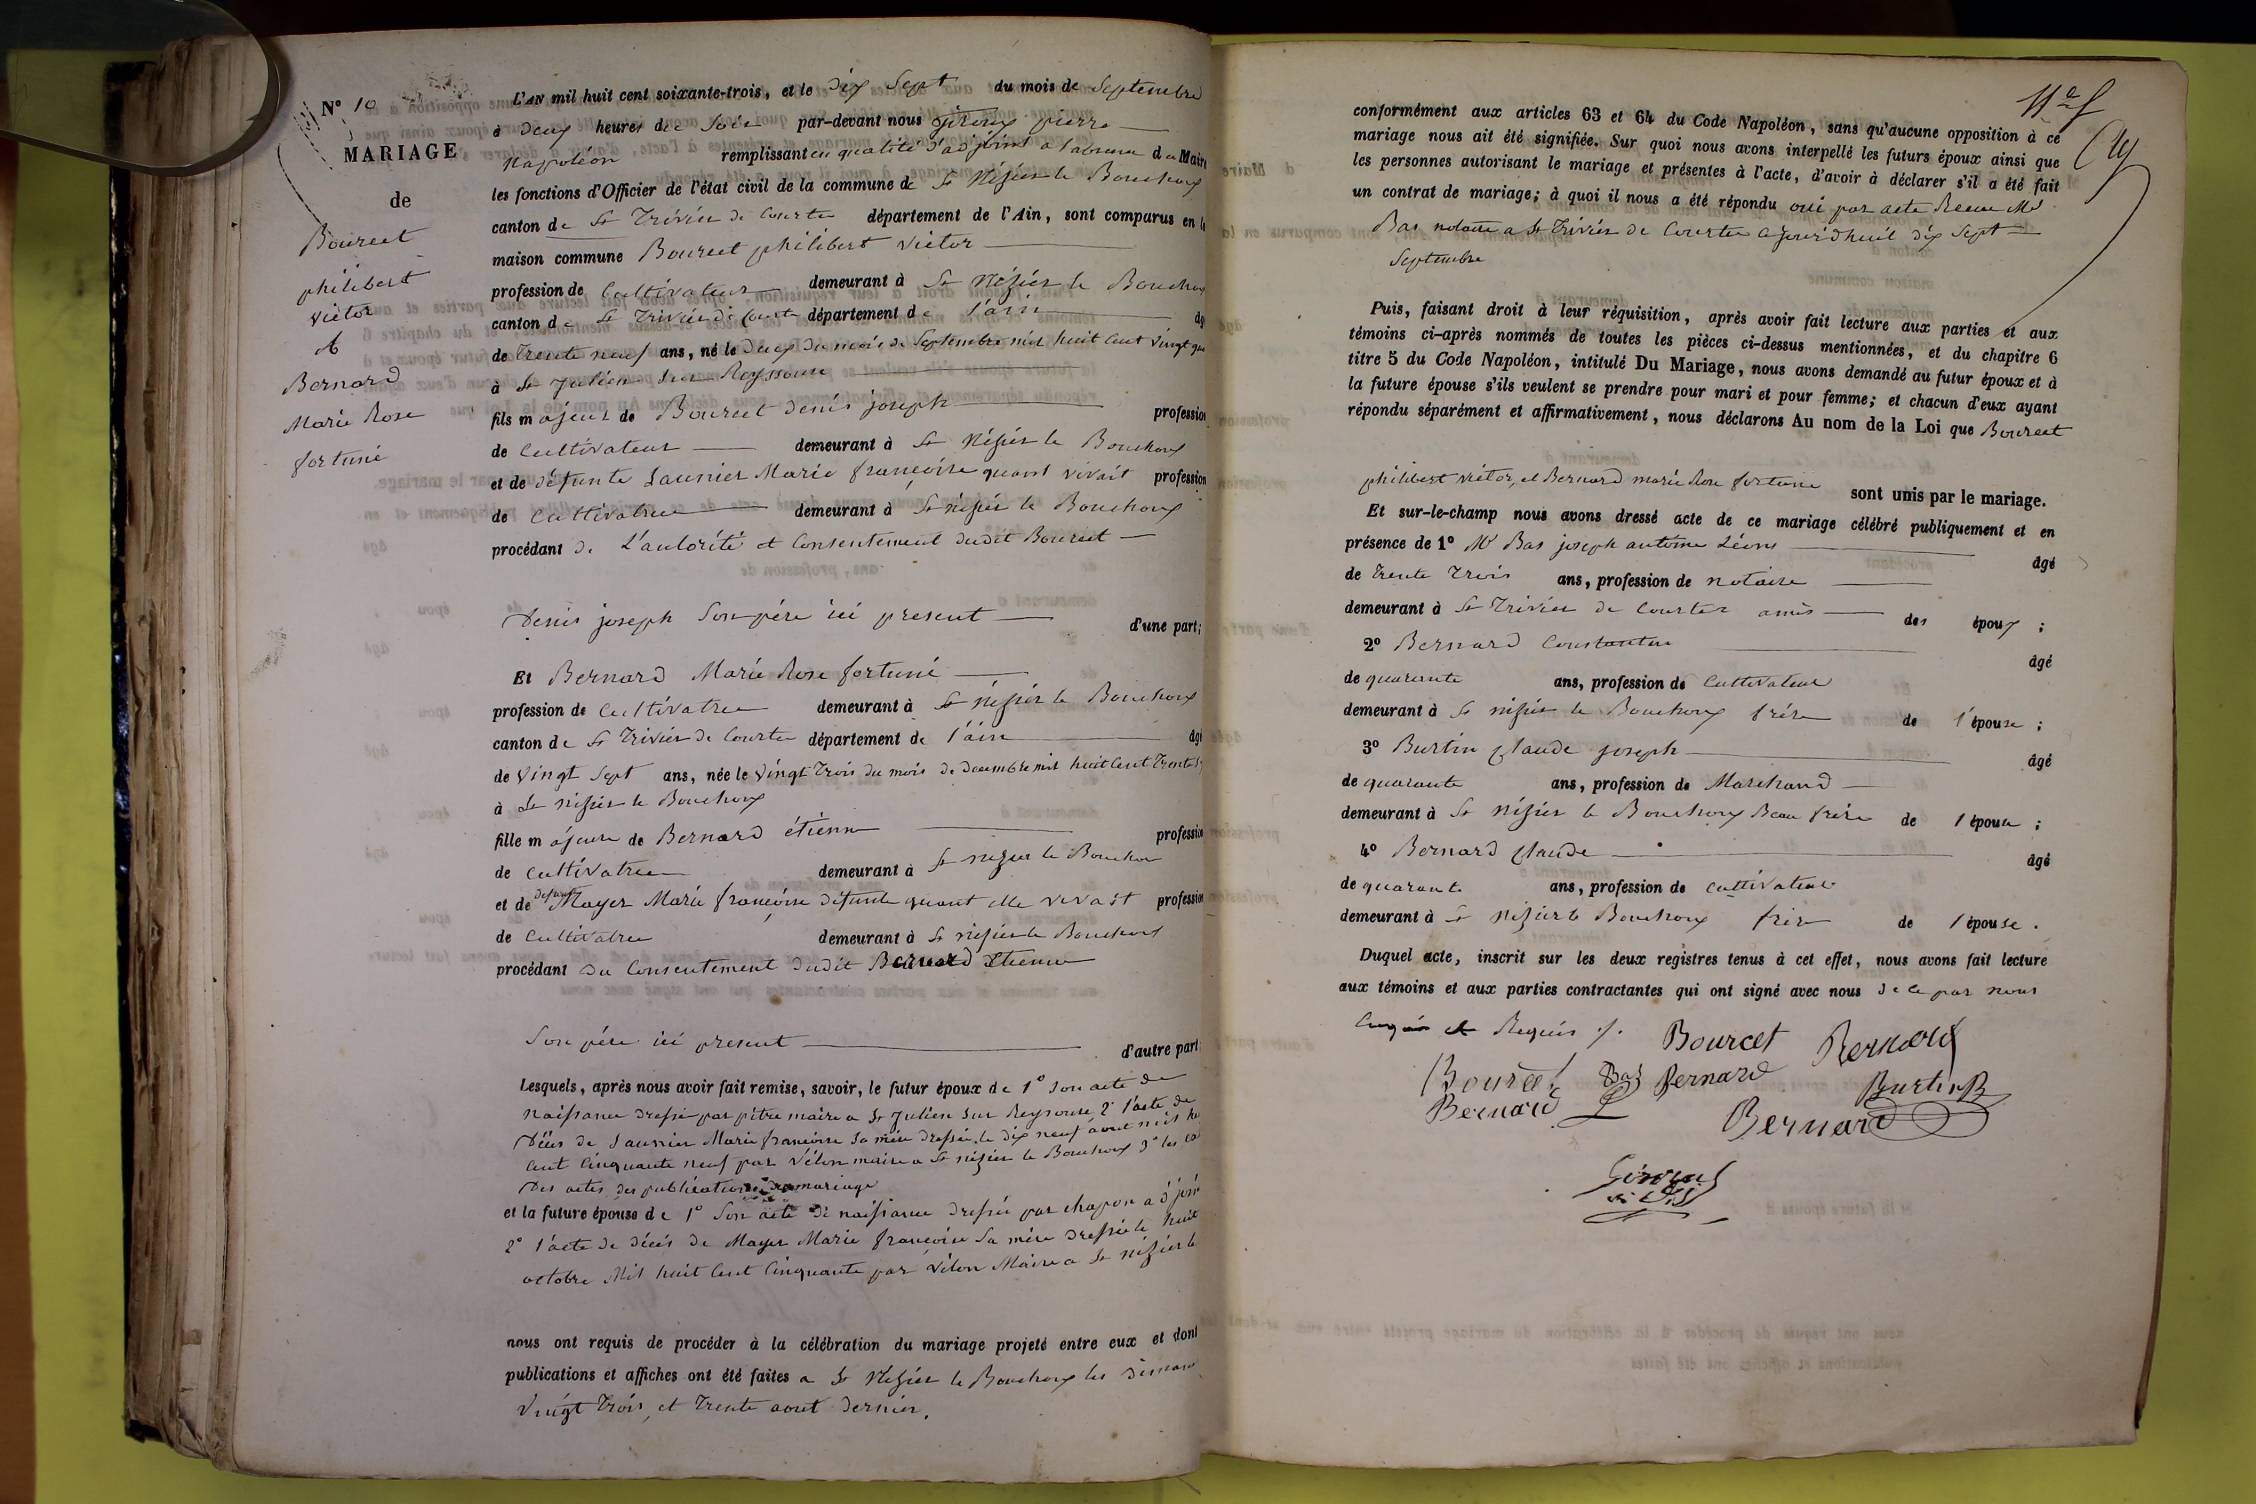 N° 10
MARIAGE
de
Bourcet
philibert
victor
&
Bernard
Marie Rose
fortuné
L'AN mil huit cent soixante-trois, et le dix Sept du mois de Septembre
à deux heures de Soir par-devant nous pierre
Napoléon remplissant en qualité d'adjoint a l'absence du Maire
les fonctions d'Officier de l'état civil de la commune de St Nésier le Bouchoux
canton de St Trivier de Courte département de l'Ain, sont comparus en la
maison commune Bourcet philibert victor
profession de Cultivateur demeurant à St Nésier le Bouchoux
canton de St Trivier de Court département de l'ain âgé
de Trente neuf ans, né le deux du mois de Septembre mil huit Cent vingt qua
à St Julien Sur Reyssouse
fils majeur de Bourcet denis joseph profession
de Cultivateur demeurant à St Nésier le Bouchoux
et de défunte Saunier Marie françoise quant vivait profession
de Cultivatrice demeurant à St nésier le Bouchoux
procédant de L'autorité et Consentement dudit Bourcet
Denis joseph Son père ici present d'une part;
Et Bernard Marie Rose fortuné
profession de Cultivatrice demeurant à St nésier le Bouchoux
canton de St Trivier de Courte département de l'ain âgé
de vingt Sept ans, née le vingt Trois du mois de decembre mil huit Cent Trente
à St nisier le Bouchoux
fille majeure de Bernard étienne profession
de Cultivatrice demeurant à St nizier le Bouchou
et de defunte Mayer Marie françoise défunte quant elle vivait profession
de Cultivatrice demeurant à St nésier le Bouchoux
procédant du Consentement dudit Bernard Etienne
Son père ici present d'autre part
Lesquels, après nous avoir fait remise, savoir, le futur époux de 1° Son acte de
naissance dressé par pitre maire a St Julien Sur Reysouse, 2° l'acte de
Décès de Saunier Marie francoise Sa mère dressé le dix neuf aout mil hu
Cent Cinquante neuf par Vélon maire a St nizier le Bouchoux 3° les
Des actes des publications du mariage
et la future épouse de 1° Son acte de naissance dressé par chapon adjoin
2° l'acte de décès de Mayer Marie françoise Sa mère dressé le huit
octobre Mil huit Cent Cinquante par Vélon Maire a St nizier le
nous ont requis de procéder à la célébration du mariage projeté entre eux et dont
publications et affiches ont été faites a St Nesier le Bouchoux les dimanc
Vingt Trois, et Trente aout dernier.
conformément aux articles 63 et 64 du Code Napoléon, sans qu'aucune opposition à ce
mariage nous ait été signifiée. Sur quoi nous avons interpellé les futurs époux ainsi que
les personnes autorisant le mariage et présentes à l'acte, d'avoir à déclarer s'il a été fait
un contrat de mariage; à quoi il nous a été répondu oui par acte Recu Me
Bas notaire a St Trivier de Courte a jourd'huit dix Sept
Septembre
Puis, faisant droit à leur réquisition, après avoir fait lecture aux parties et aux
témoins ci-après nommés de toutes les pièces ci-dessus mentionnées, et du chapitre 6
titre 5 du Code Napoléon, intitulé Du Mariage, nous avons demandé au futur époux et à
la future épouse s'ils veulent se prendre pour mari et pour femme; et chacun d'eux ayant
répondu séparément et affirmativement, nous déclarons Au nom de la Loi que Bourcet
philibert victor, et Bernard marie Rose fortune sont unis par le mariage.
Et sur-le-champ nous avons dressé acte de ce mariage célébré publiquement et en
présence de 1° Mr Bas joseph antoine Léons âgé
de Trente Trois ans, profession de notaire
demeurant à St Trivier de Courtes amis des époux ;
2° Bernard Constantin âgé
de quarante ans, profession de Cultivateur
demeurant à St nisier le Bouchoux frère de l'épouse ;
3° Burtin Claude joseph âgé
de quarante ans, profession de Marchand
demeurant à St Nésier le Bouchoux Beau frère de l'épouse ;
4° Bernard Claude âgé
de quarante ans, profession de Cultivateur
demeurant à St Nésier le Bouchoux frère de l'épouse.
Duquel acte, inscrit sur les deux registres tenus à cet effet, nous avons fait lecture
aux témoins et aux parties contractantes qui ont signé avec nous de ce par nous
et Requis ./.
Bourcet Bernard
Bourcet Bas Bernard Burtin
Bernard Bernard